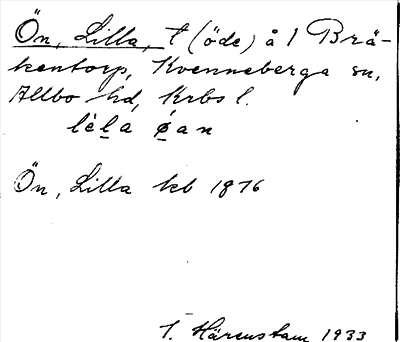 Ön, Lilla, t (öde) å 1 Brä-
kentorp, Kvenneberga sn,
Allbo hd, Krbs l.
lèla øan
Ön, Lilla kb 1876
1. Härenstam 1933